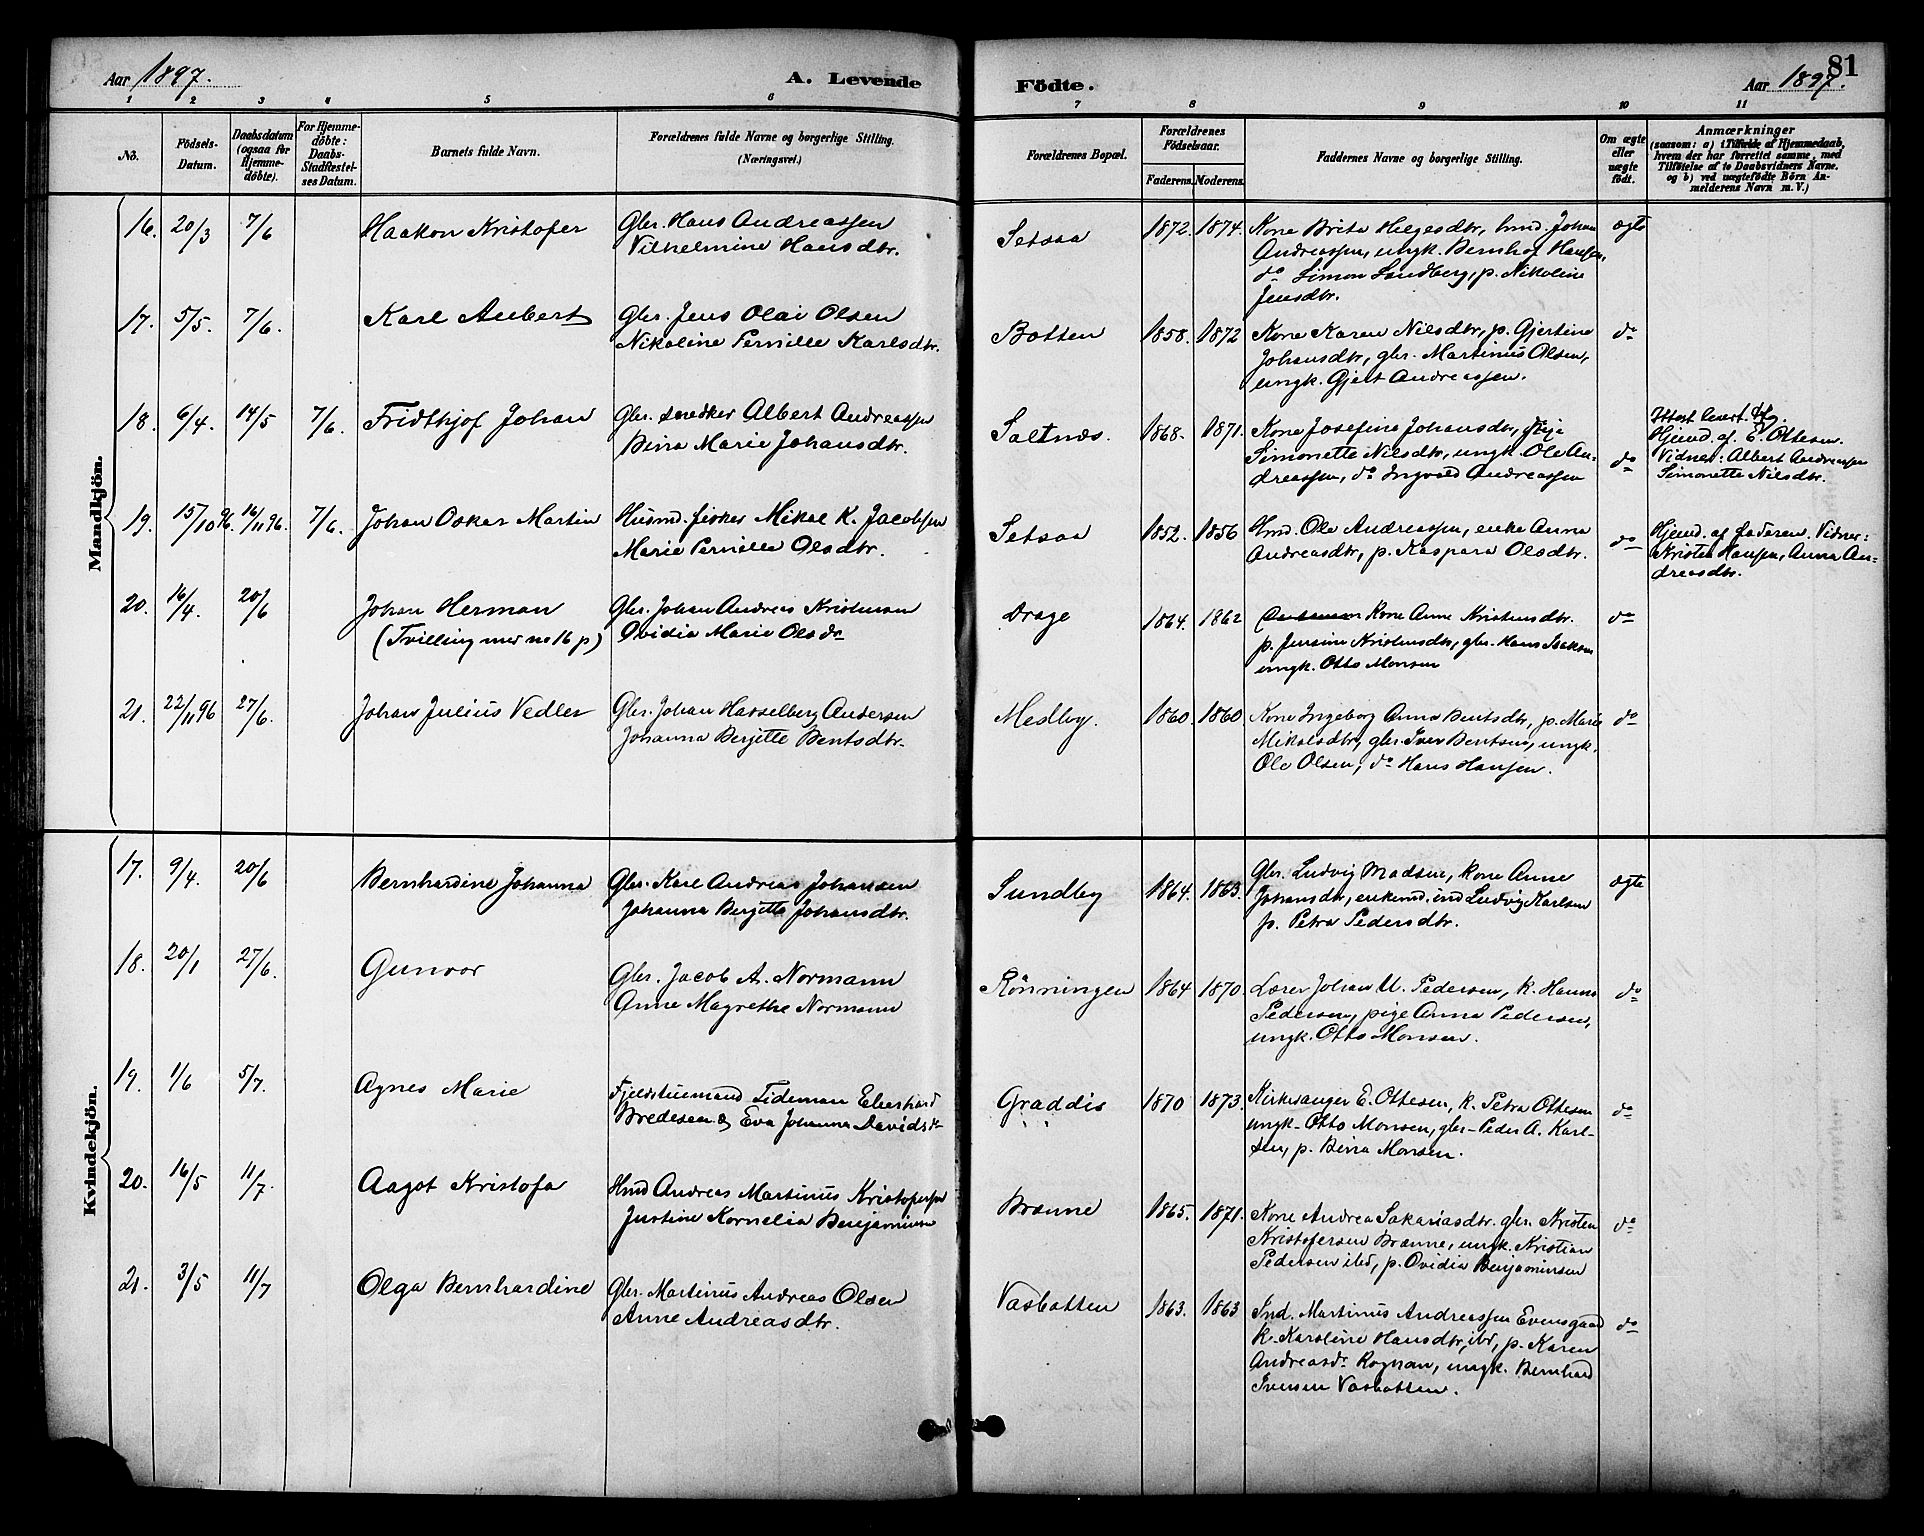 Aar 1897.
A. Levende
Födte.
Aar 1897.
81
1 2 3 4 5 6 7 8 9 10 11
No.
Födsels-
Datum.
Daabsdatum
(ogsaa for
Hjemme-
döbte).
For Hjemme-
döbte:
Daabs-
Stadfæstel-
ses Datum.
Barnets fulde Navn.
Forældrenes fulde Navne og borgerlige Stilling.
(Næringsvei.)
Forældrenes Bopæl.
Forældrenes
Födselsaar.
Faderens. Moderens.
Faddernes Navne og borgerlige Stilling.
Om ægte
eller
uægte
født.
Anmærkninger
(saasom: a) i Tilfælde af Hjemmedaab,
hvem der har forrettet samme, med
Tilföielse af to Daabsvidners Navne.
og b) ved uægtefödte Börn An-
melderens Navn m. V.)
Mandkjön.
16. 20/3 7/6 Haakon Kristofer
Gbr. Hans Andreassen
Vilhelmine Hansdtr.
Setsaa 1872. 1874.
Kone Brita Helgesdtr, hmd. Johan
Andreassen, ungk. Bernhof Hansen,
do Simon Sandberg, p. Nikoline
Jensdtr.
ægte
17. 5/5. 7/6. Karl Aubert
Gbr. Jens Olai Olsen
Nikoline Pernille Karlsdtr.
Botten 1858. 1872
Kone Karen Nilsdtr, p. Gjertine
Johansdtr, gbr. Martinus Olsen,
ungk. Gjert Andreassen.
do
18. 6/4. 14/5 7/6. Fridthjof Johan
Gbr. snedker Albert Andreassen
Berra Marie Johansdtr.
Saltnæs. 1868. 1871.
Kone Josefine Johansdtr, pige
Simonette Nilsdtr, ungk. Ole An-
dreassen, do Ingvald Andreassen
do
Hjemd. af E. Ottesen.
Vidner: Albert Andreassen
Simonette Nilsdtr.
19. 15/10 96. 16/11 96. 7/6. Johan Oskar Martin
Husmd. fisker Mikal K. Jacobsen
Marie Pernille Olsdtr.
Setsaa 1852. 1856
Hmd. Ole Andreassen, enke Anna
Andreasdtr, p. Kaspara Olsdtr.
do
Hjemd. af faderen. Vidner:
Kristen Hansen, Anna An-
dreasdtr.
20. 16/4. 20/6 Johan Herman
(Tvilling med no 16 p)
Gbr. Johan Andreas Kristensen
Ovidia Marie Olsdr
Drage 1864. 1862
Kone Anne Kristensdtr.
p. Jensine Kristensdtr, gbr. Hans Isaksen
ungk. Otto Monsen
do
21. 22/11 96 27/6. Johan Julius Vedler
Gbr. Johan Hasselberg Andersen
Johanna Berjette Bentsdtr.
Medby. 1860. 1860.
Kone Ingeborg Anna Bentsdtr, p. Marie
Mikalsdtr, gbr. Iver Bentsen, ungk.
Ole Olsen, do Hans Hansen.
do
Kvindekjön.
17. 9/4. 20/6 Bernhardine Johanna
Gbr. Karl Andreas Johansen
Johanna Berjette Johansdtr.
Sundby 1864. 1863.
Gbr. Ludvig Madsen, kone Anne
Johansdtr, enkemd. ind Ludvig Karlsen
p. Petra Pedersdtr.
ægte
18. 20/1 27/6. Gunvor
Gbr. Jacob A. Normann
Anne Magrethe Normann
Rönningen 1864 1870.
Lærer Johan U. Pedersen, k. Hanna
Pedersen, pige Anna Pedersen,
ungk. Otto Monsen.
do
19. 1/6 5/7. Agnes Marie
Fjeldstuemand Tideman Eberhard
Bredesen & Eva Johanna Davidsdr
Graddis 1870 1873.
Kirkesanger E. Ottesen, k. Petra Ottesen
ungk. Otto Monsen, gbr. Peder A. Karl-
sen, p. Berra Monsen.
do
20. 16/5 11/7. Aagot Kristofa
Hmd Andreas Martinus Kristofersen
Justine Kornelia Benjaminsen
Brænne 1865. 1871.
Kone Andrea Sakariasdtr. gbr. Kristen
Kristofersen Brænne, ungk. Kristian
Pedersen ibd, p. Ovidia Benjaminsen
do
21. 3/5 11/7 Olga Bernhardine
Gbr. Martinus Andreas Olsen
Anne Andreasdtr.
Vasbotten 1863. 1863
Ind. Martinus Andreassen Evensgaard
k. Karoline Hansdtr, ibd, p. Karen
Andreasdr Rognan, ungk. Bernhard
Iversen Vasbotten.
do